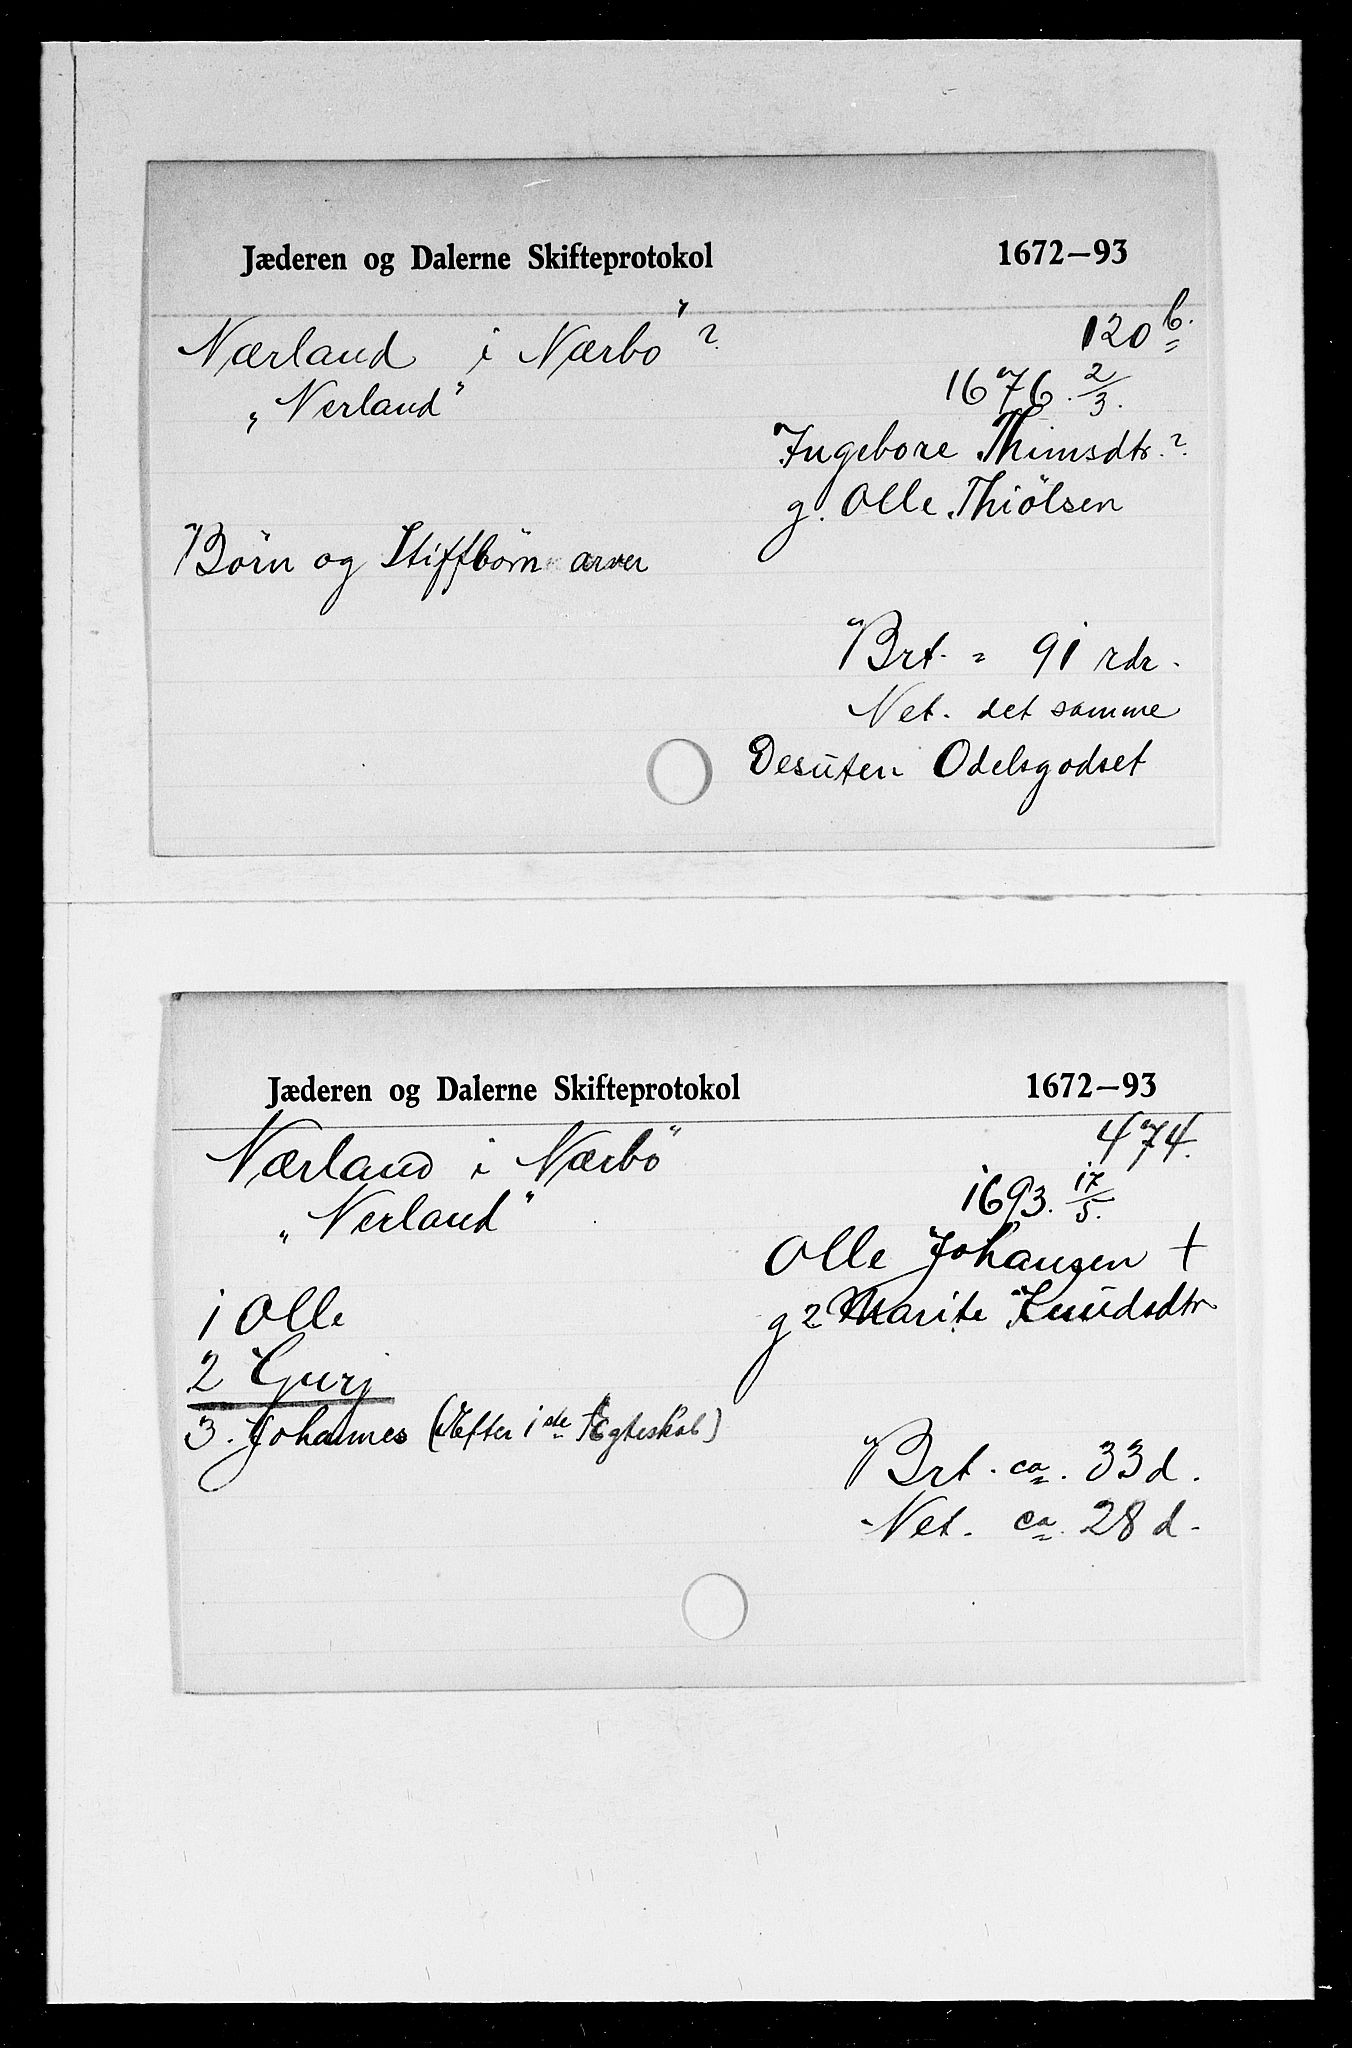 Jæderen og Dalerne Skifteprotokol 1672–93
Nærland i Nærbö ? 120 b.
„Nerland" 1676. 2/3.
Ingebore Thimsdtr. ?
g. Olle Thiölsen
Börn og Stiffbörn arver
Brt. = 91 rdr.
Net. det samme
Desuten Odelsgodset
Jæderen og Dalerne Skifteprotokol 1672–93
Nærland i Nærbö 474.
„Nerland" 1693. 17/5.
Olle Johansen +
1 Olle g 2 Marite Knudsdtr
2 Guri
3. Johannes (Efter 1ste Egteskab)
Brt. ca. 33 d.
Net. ca. 28 d.